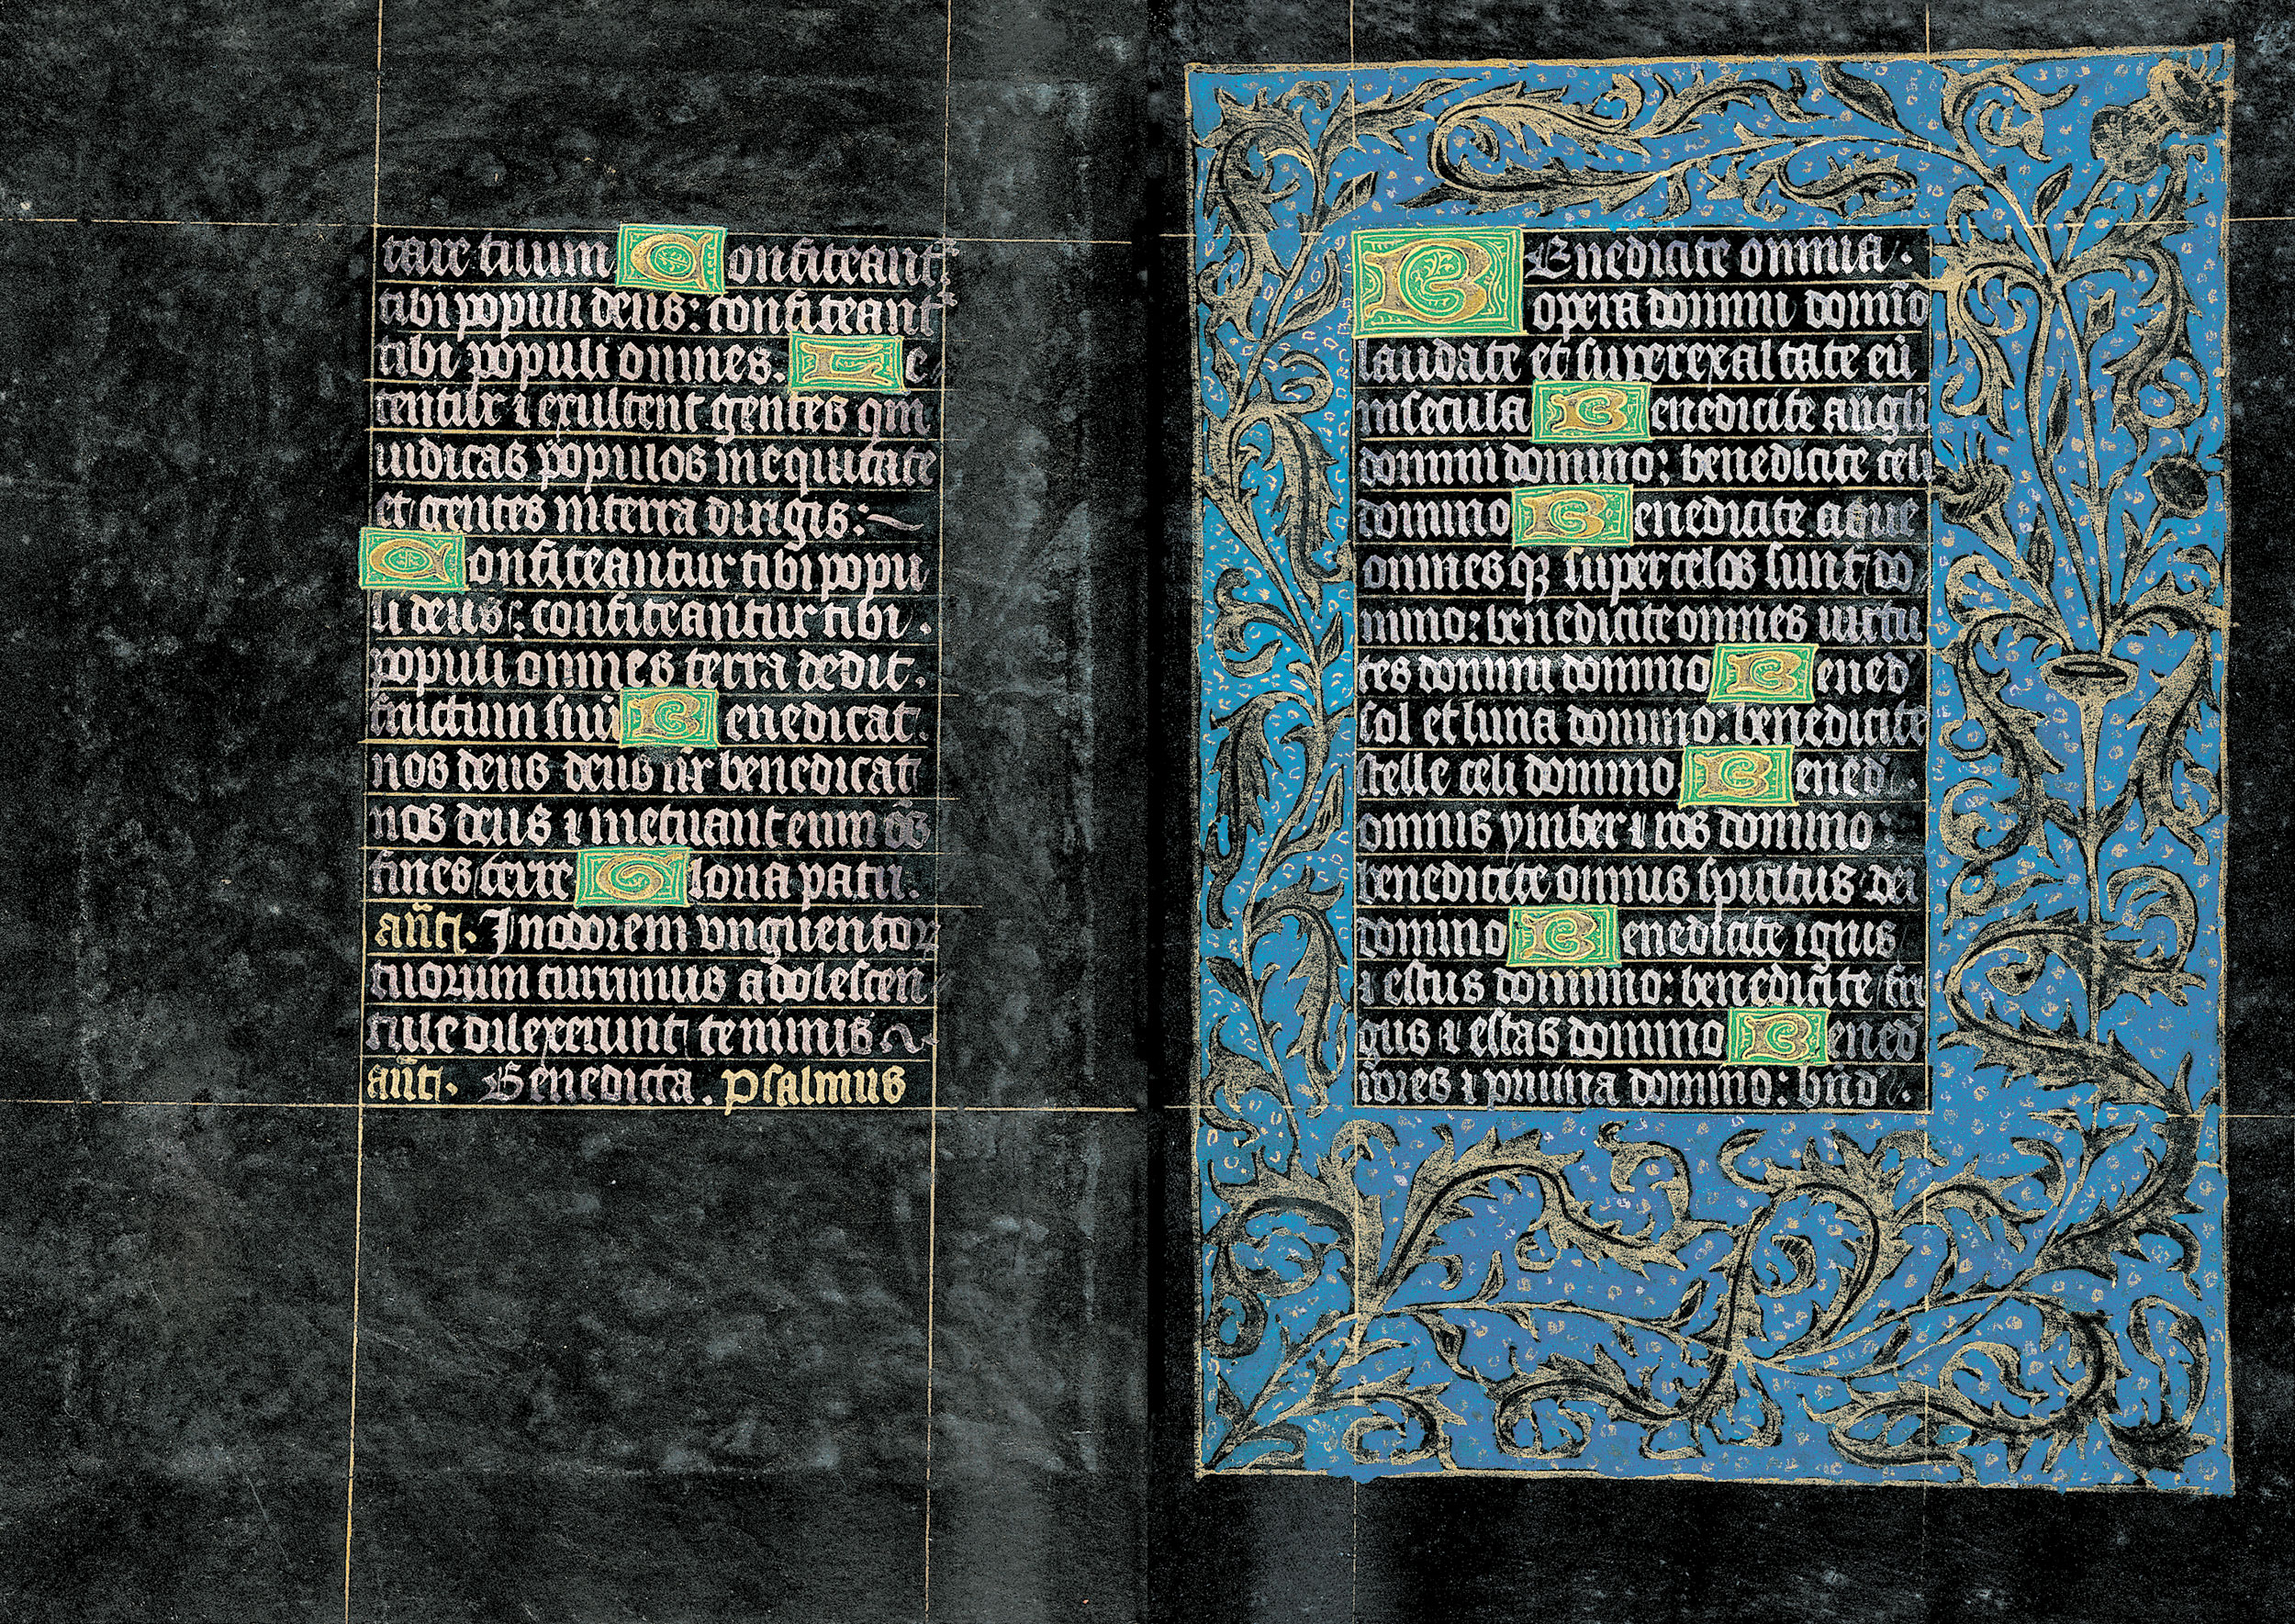 tare tuum Confiteant᷑
tibi populi deus: confiteant᷑
tibi populi omnes. Le
tentur ⁊ exultent gentes qm̄
iudicas populos in equitate
et gentes in terra dirigis:~
Confiteantur tibi popu
li deus: confiteantur tibi.
populi omnes terra dedit.
fructum suū Benedicat.
nos deus deus nr̄ benedicat
nos deus ⁊ metuant eum oēs
fines terre Gloria patri.
an̄t. In odorem vnguentoꝝ
tuorum currimus adolescen
tule dilexerunt te nimis
an̄t. Benedicta. psalmus
BEnedicite omnia.
opera domini domīo
laudate et superexaltate eū
in secula Benedicite angli
domini domino: benedicite celi
domino Benedicite aque
omnes q̄ super celos sunt do
mino: benedicite omnes virtu
tes domini domino Bened
sol et luna domino: benedicite
stelle celi domino Bened.
omnis ymber ⁊ ros domino:
benedicite omnis spiritus dei
domino Benedicite ignis
⁊ estus domino: benedicite fri
gus ⁊ estas domino Bened
rores ⁊ pruina domino: bn̄d.